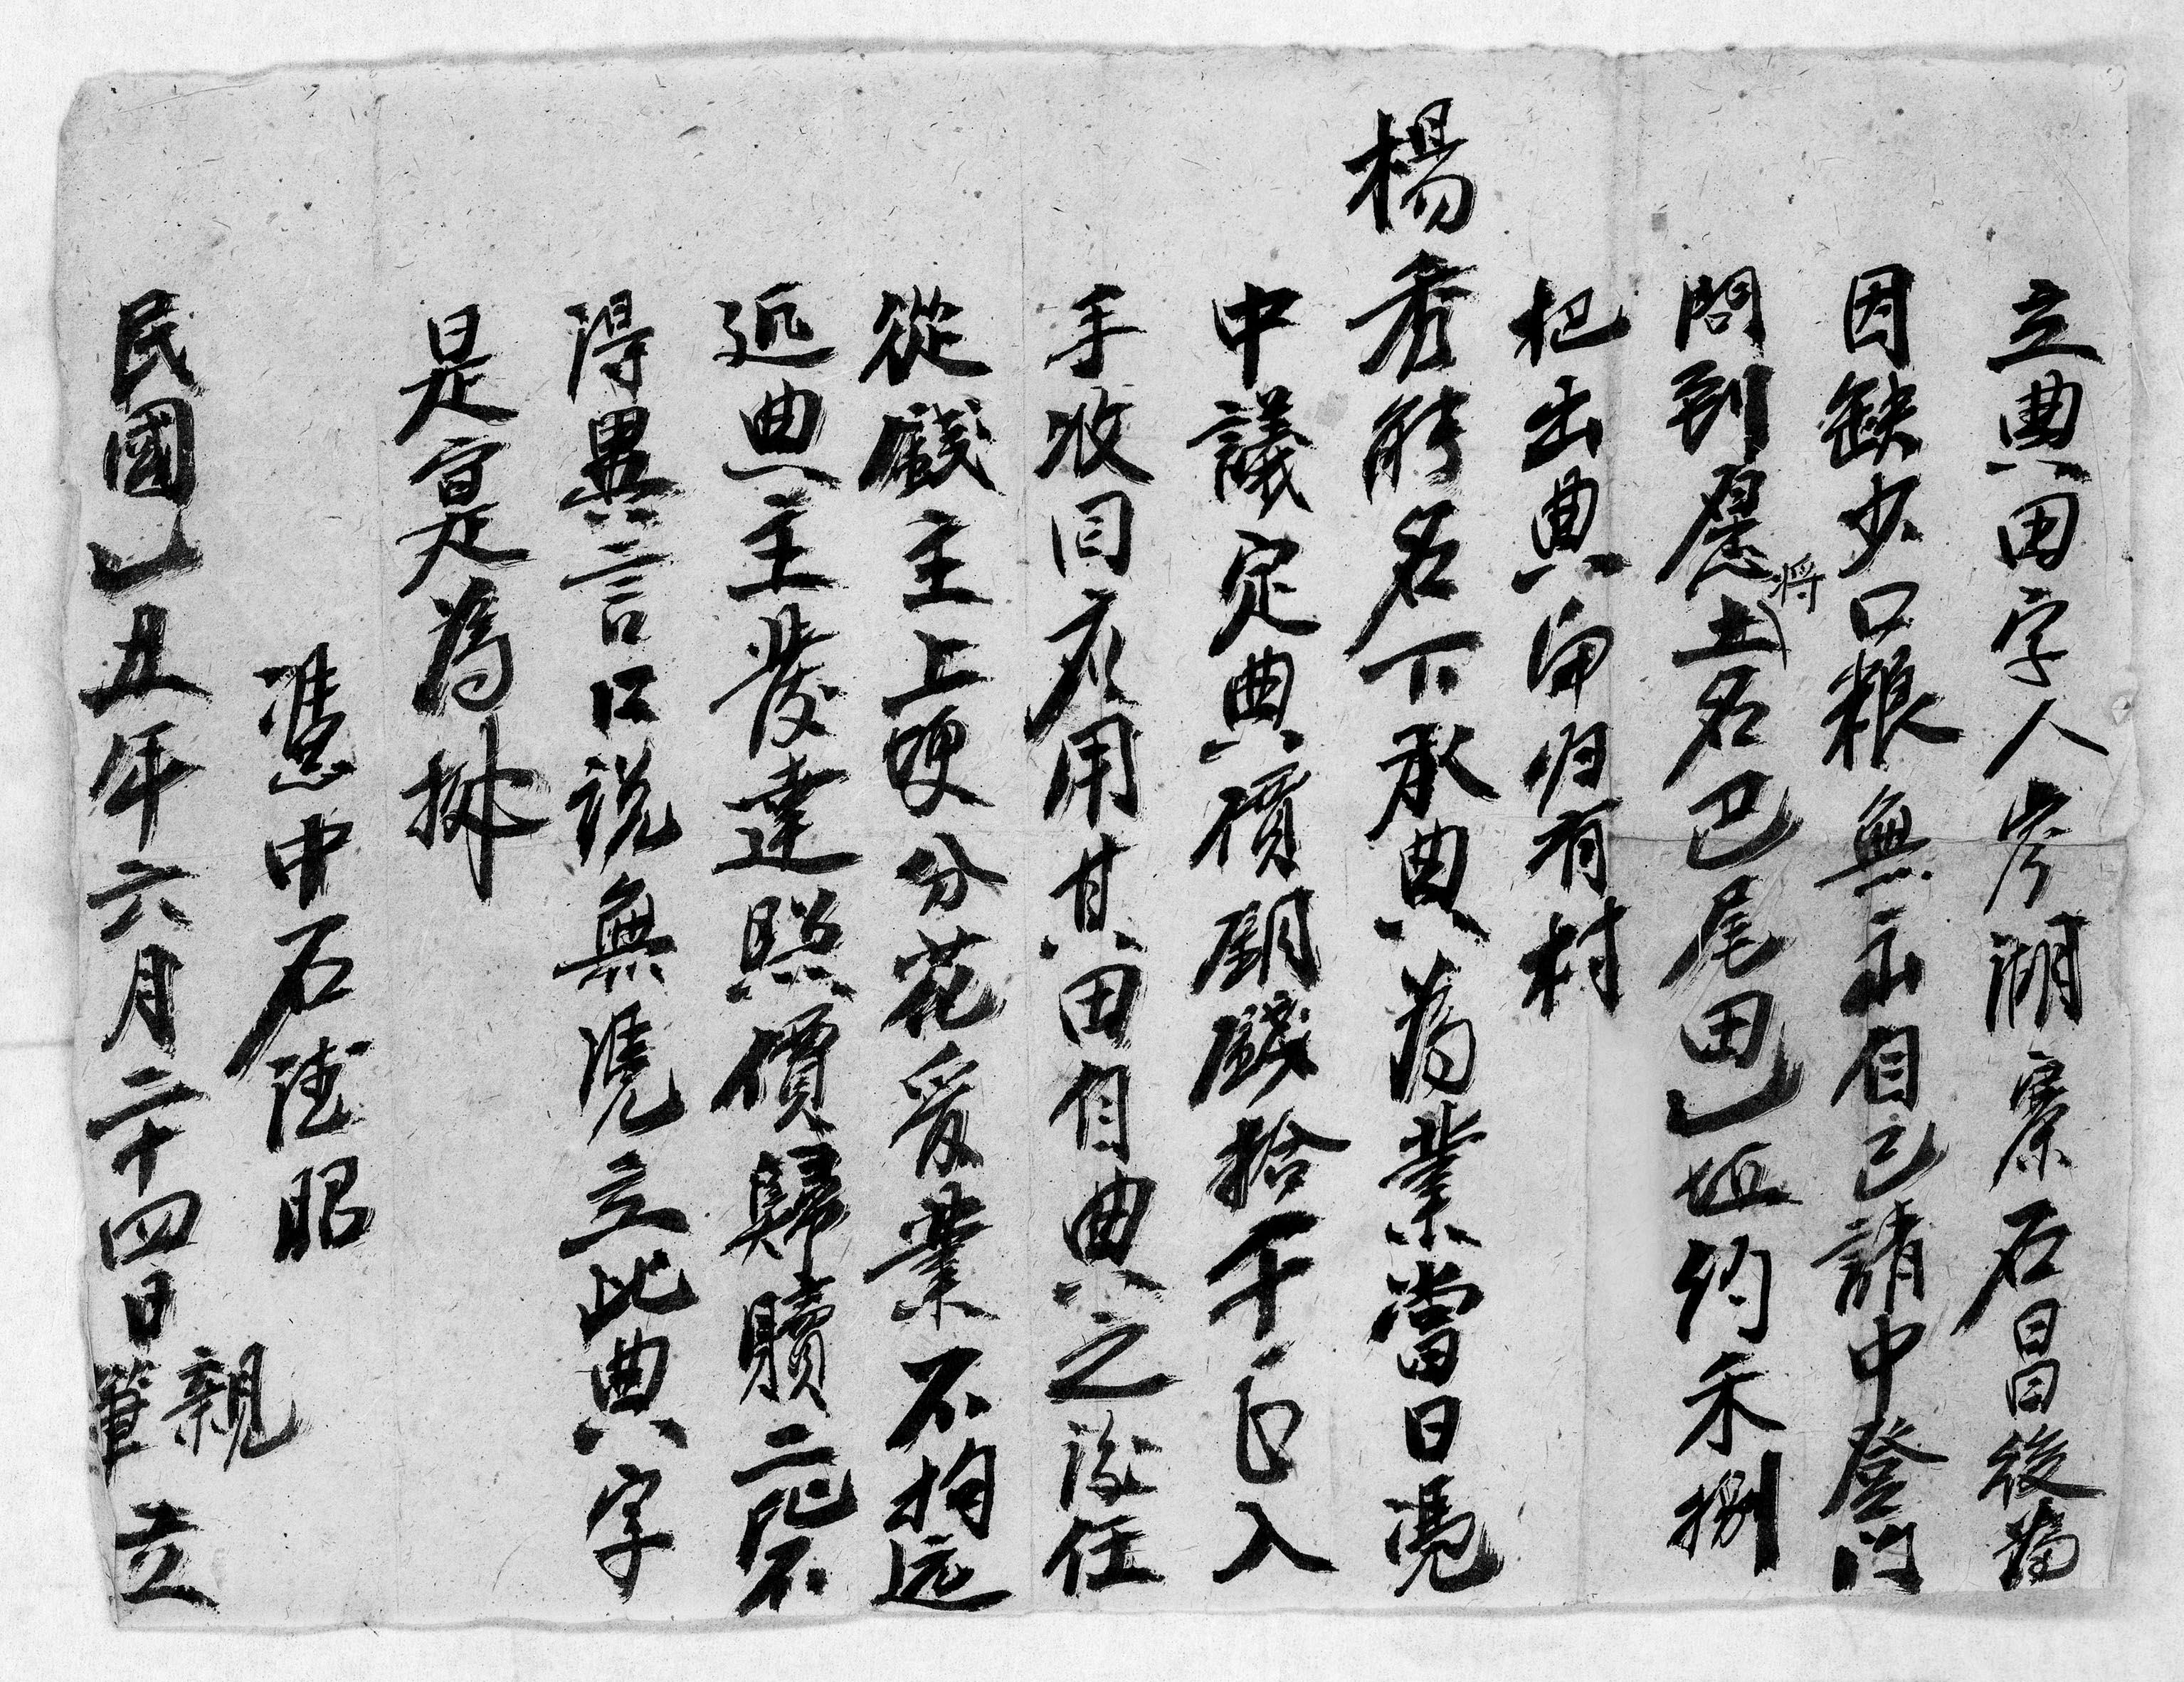 立典田字人岑湖寨石昌後為
因缺少口粮無示自己請中登門
問到愿將土名巴尾田一坵約禾捌
把出典與归有村
楊秀能名下承典為業當日憑
中議定典價銅錢拾千〇入
手收回应用其田自典之後任
從錢主上硬分花爰業不拘远
近典主發達照價歸贖二比不
得異言口說無憑立此典字
是實是為據
憑中石德昭
民國乙丑年六月二十四日親筆立